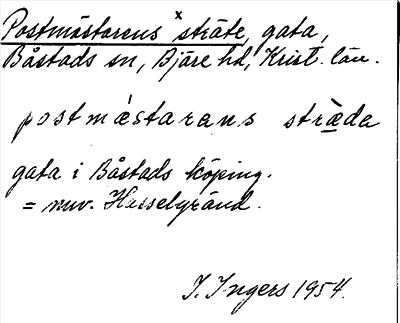 Postmästarens ˣsträte, gata,
Båstads sn, Bjäre hd, Krist. län.
postmástarans strǟda
gata i Båstads köping.
= nuv. Hasselgränd.
I. Ingers 1954.